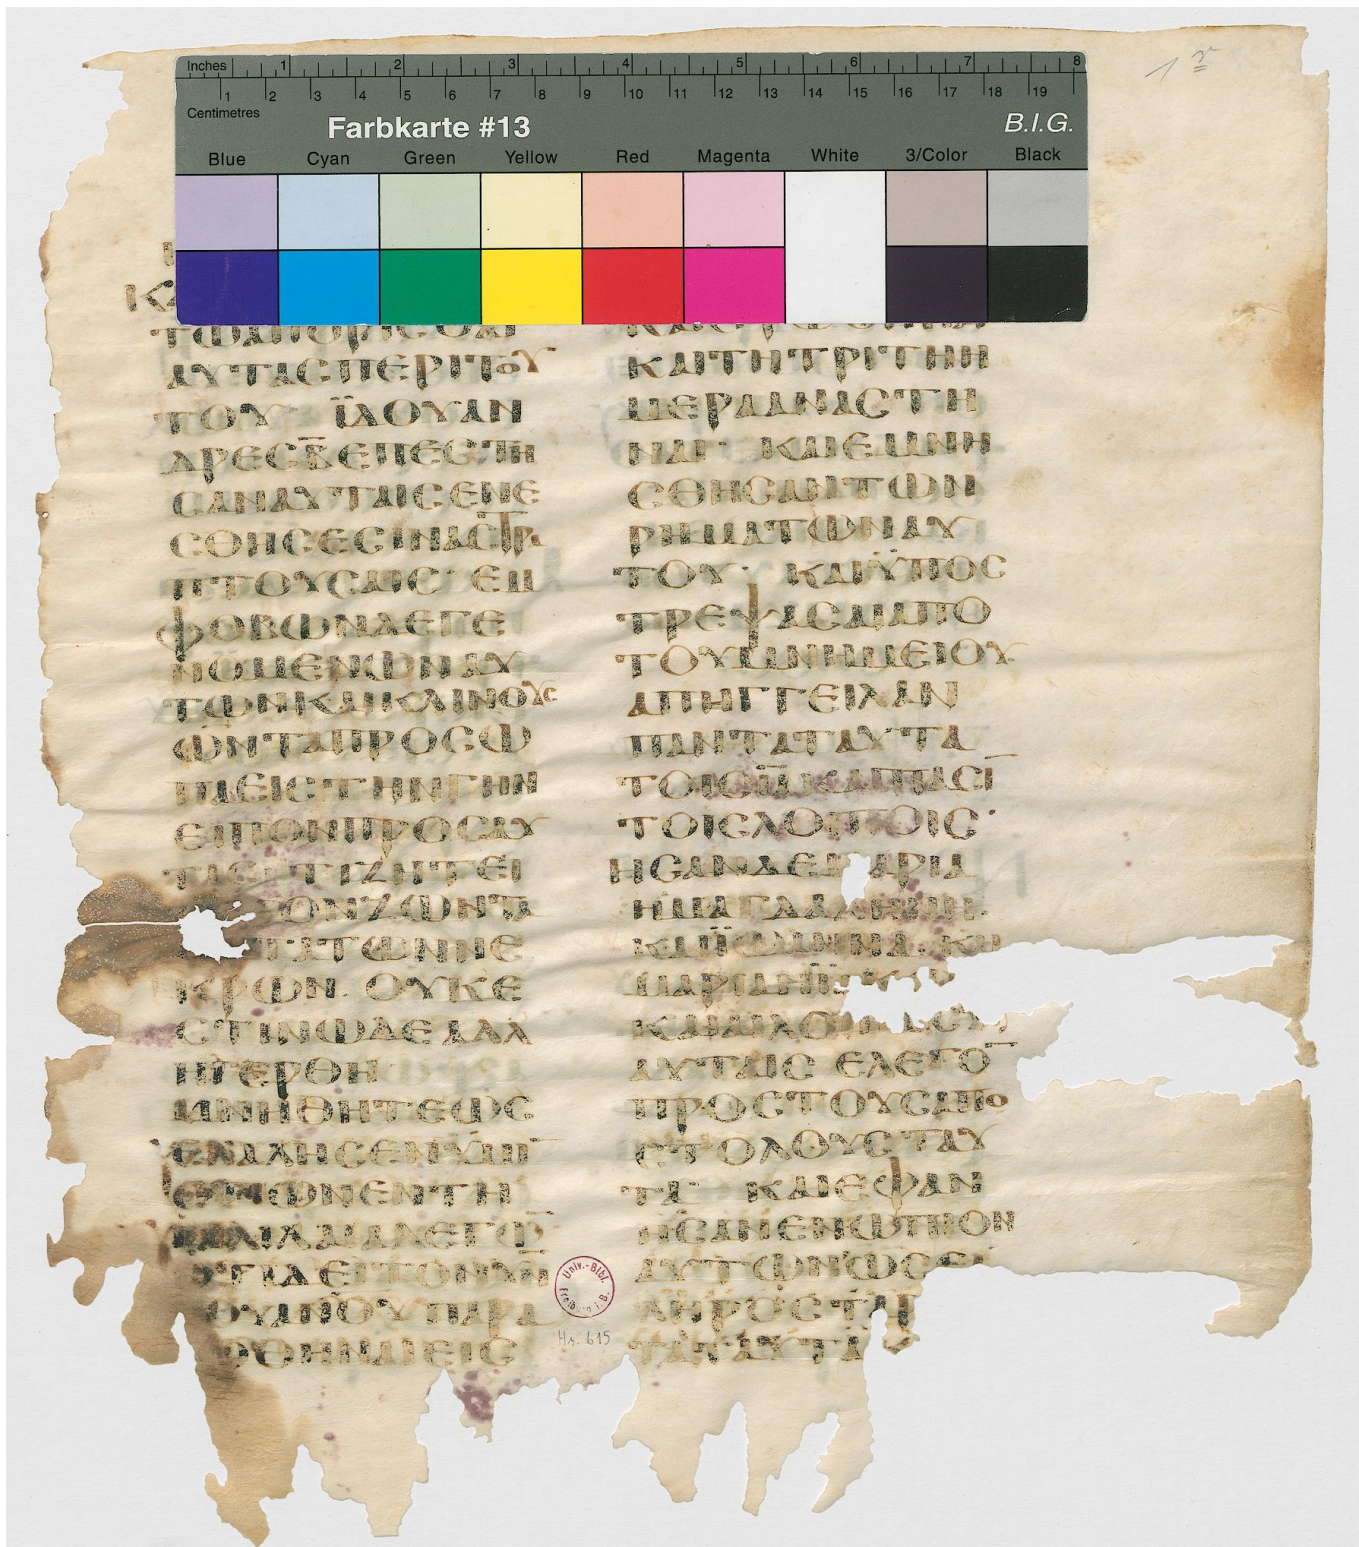 Inches 1 2 3 4 5 6 7 8
1 2 3 4 5 6 7 8 9 10 11 12 13 14 15 16 17 18 19
Centimetres
Farbkarte #13 B.I.G.
Blue Cyan Green Yellow Red Magenta White 3/Color Black
Κ
ΤΩΑΠΟΡΙϹΘΑΙ
ΑΥΤΑϹΠΕΡΙΤΟΥ
ΤΟΥ ΪΔΟΥΑΝ
ΔΡΕϹΒ̅ΕΠΕϹΤΗ
ϹΑΝΑΥΤΑΙϹΕΝΕ
ϹΘΗϹΕϹΙΝΑϹΤΡΑ
ΠΤΟΥϹΑΙϹ· ΕΜ
ΦΟΒΩΝΔΕΓΕ
ΝΟΜΕΝΩΝΑΥ
ΤΩΝΚΑΙΚΛΙΝΟΥϹ
ΩΝΤΑΠΡΟϹΩ
ΠΑΕΙϹΤΗΝΓΗΝ
ΕΙΠΟΝΠΡΟϹΑΥ
ΤΑϹ· ΤΙΖΗΤΕΙ
ΤΟΝΖΩΝΤΑ
ΤΑΤΩΝΝΕ
ΚΡΩΝ· ΟΥΚΕ
ϹΤΙΝΩΔΕΑΛΛ
ΗΓΕΡΘΗ
ΜΝΗϹΘΗΤΕΩϹ
ΕΛΑΛΗϹΕΝΥΜΙ̅
ΕΤΙΩΝΕΝΤΗ
ΓΑΛΙΛΑΙΑΛΕΓΩ̅
ΟΤΙΔΕΙΤΟΝΥ̅Ν̅
ΟΥΑ̅Ν̅Ο̅Υ̅ΠΑΡΑ
ΟΘΗΝΑΙΕΙϹ
ΚΑΙϹΤΑΥΡΩΘΗΝΑΙ
ΚΑΙΤΗΤΡΙΤΗΗ
ΜΕΡΑΑΝΑϹΤΗ
ΝΑΙ· ΚΑΙΕΜΝΗ
ϹΘΗϹΑΝΤΩΝ
ΡΗΜΑΤΩΝΑΥ
ΤΟΥ· ΚΑΙΫΠΟϹ
ΤΡΕΨΑϹΑΙΑΠΟ
ΤΟΥΜΝΗΜΕΙΟΥ
ΑΠΗΓΓΕΙΛΑΝ
ΠΑΝΤΑΤΑΥΤΑ
ΤΟΙϹΙ̅Α̅ΚΑΙΠΑϹΙ̅
ΤΟΙϹΛΟΙΠΟΙϹ·
ΗϹΑΝΔΕ ΑΡΙΑ
ΗΜΑΓΔΑΛΗΝΗ
ΚΑΙΪΩΑΝΝΑ ΚΑΙ
ΜΑΡΙΑΗΪ
ΚΑΙΑΙΛΟΙΠ
ΑΥΤΑΙϹ ΕΛΕΓΟ̅
ΠΡΟϹΤΟΥϹΑΠΟ
ϹΤΟΛΟΥϹΤΑΥ
ΤΑ· ΚΑΙΕΦΑΝ
ΗϹΑΝΕΝΩΠΙΟΝ
ΑΥΤΩΝΩϹΕΙ
ΛΗΡΟϹΤΑ
ΤΑΤΑΥΤΑ
Univ.-Bibl. Freiburg i. B.
Hs. 615
1 r